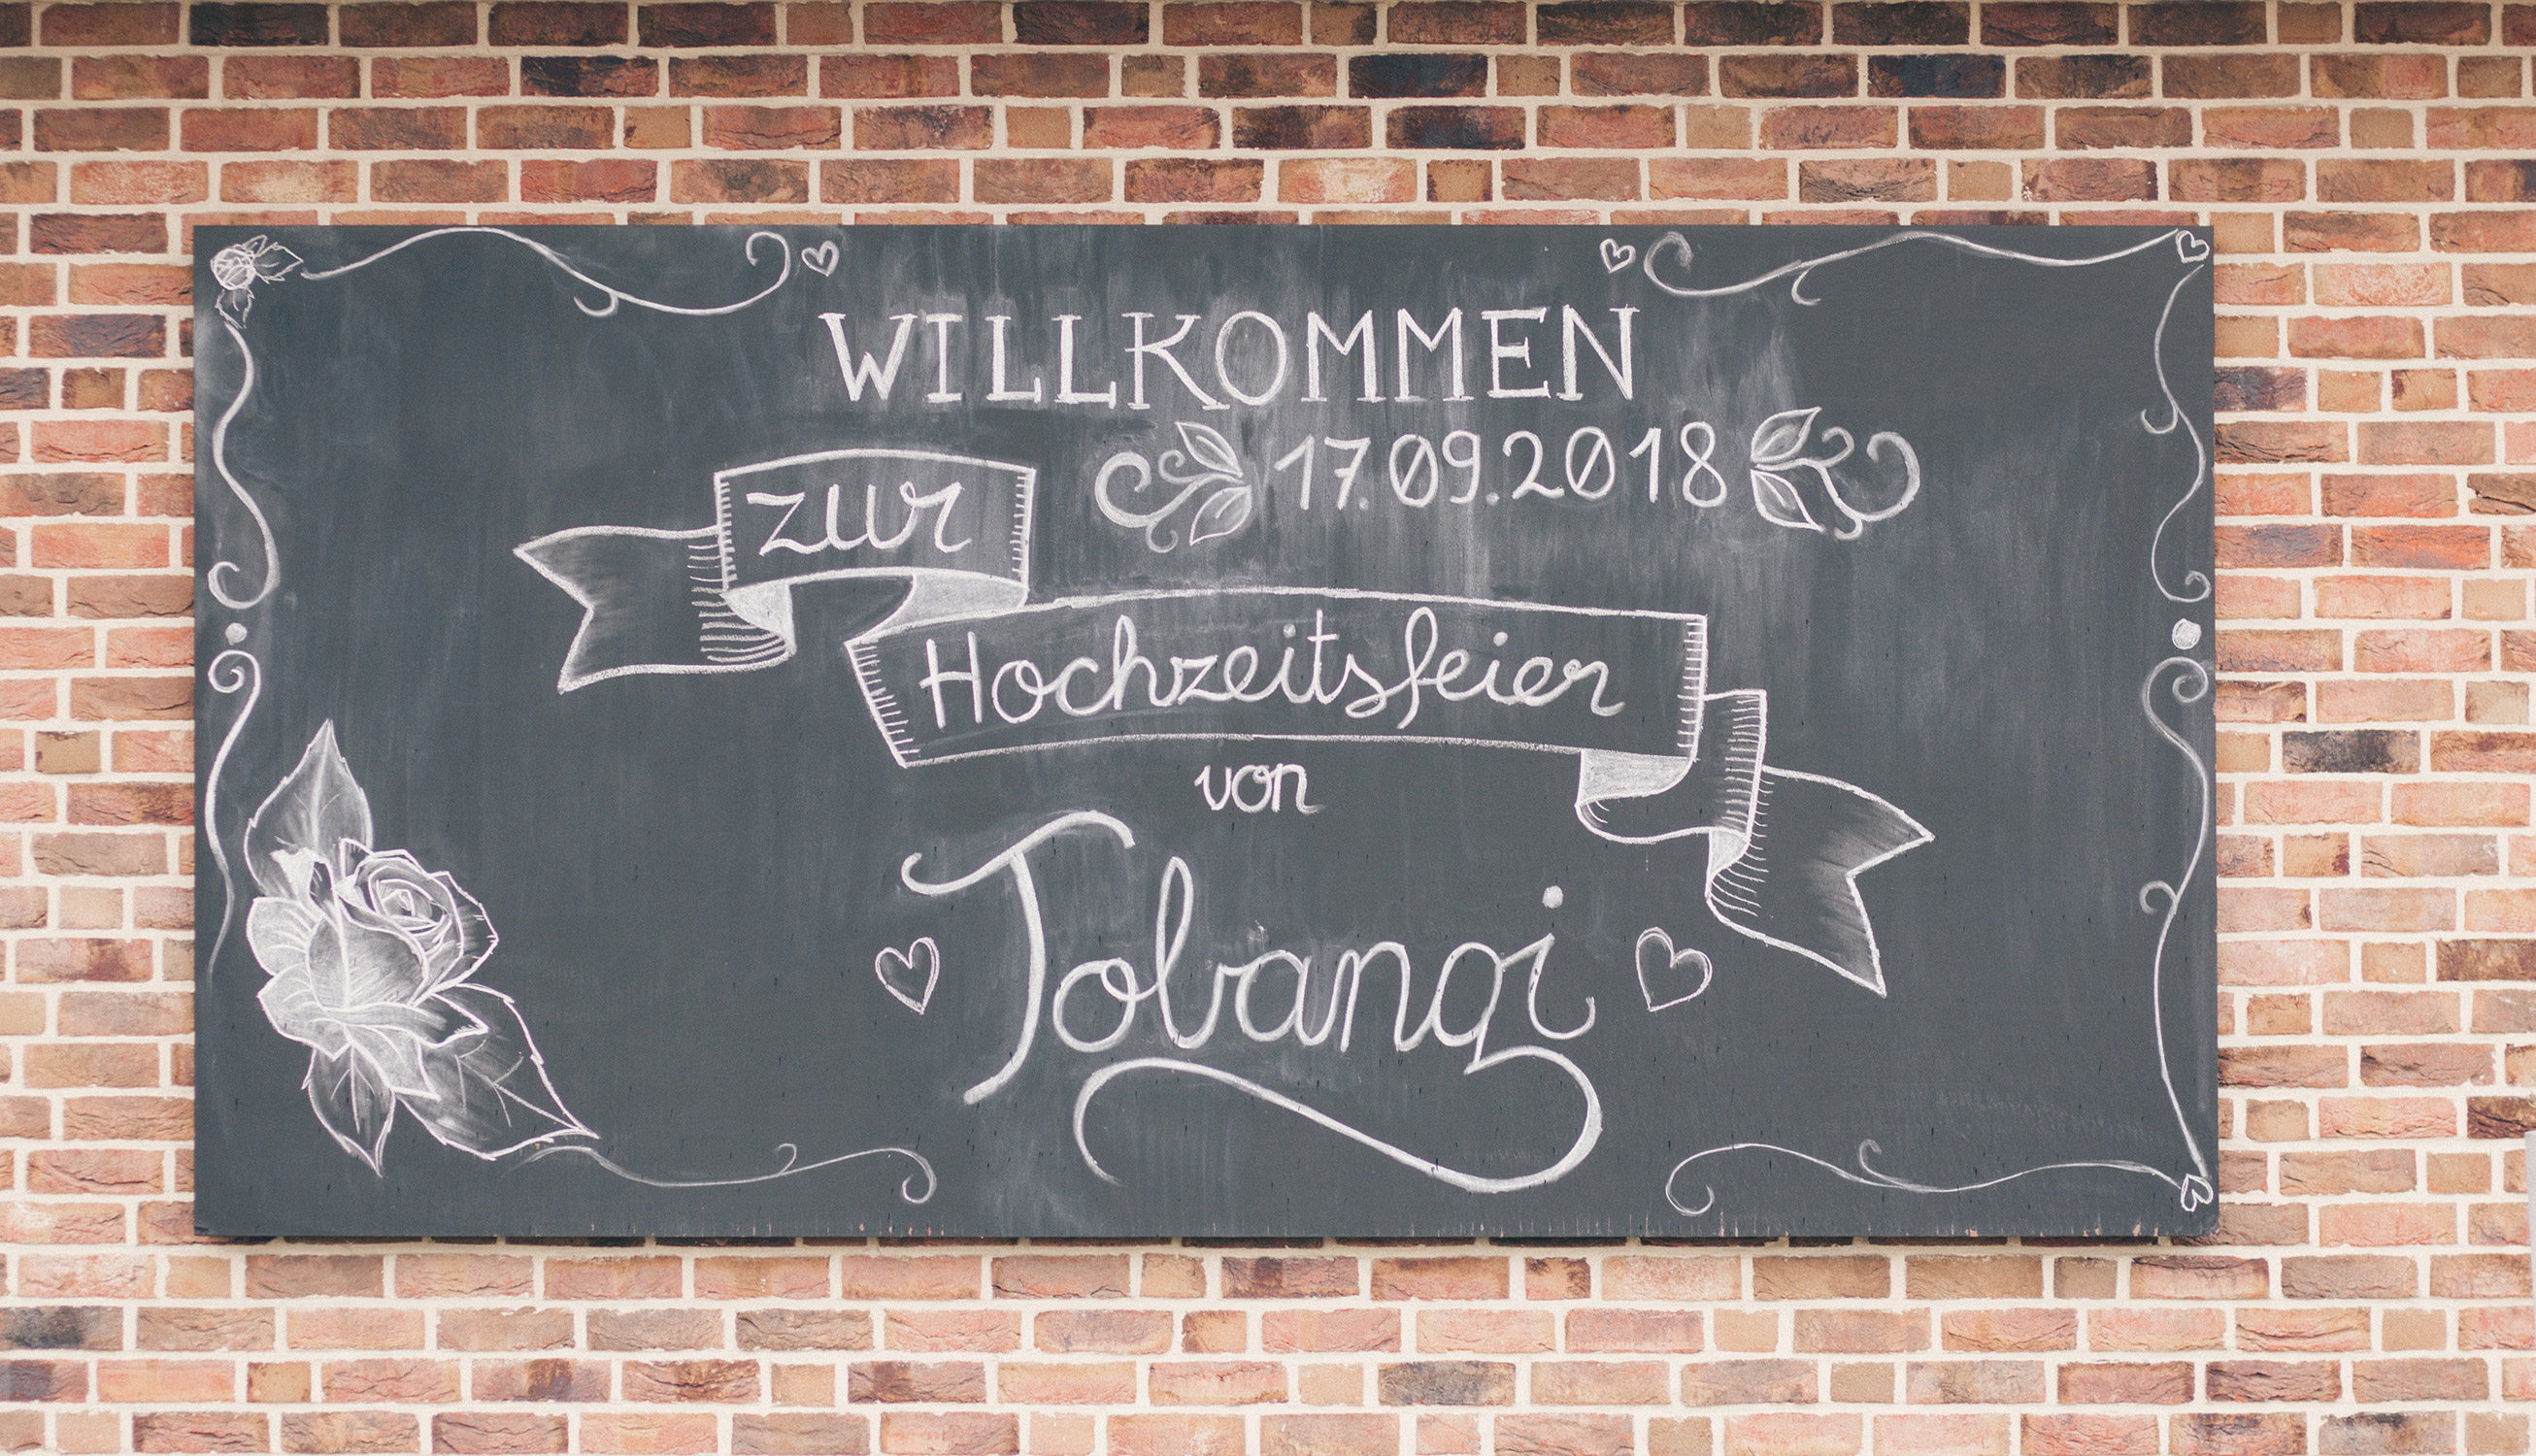 WILLKOMMEN
17.09.2018
zur
Hochzeitsfeier
von
Tobangi